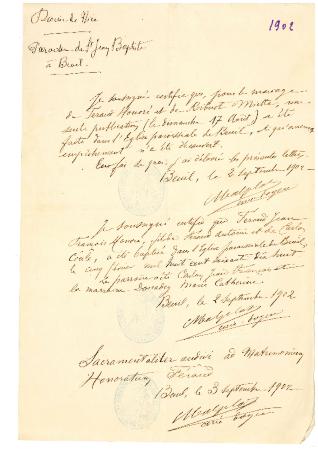 Diocèse de Nice
1902
Paroisse de St Jean Baptiste
à Beuil.
Je soussigné certifie que, pour le mariage
de Féraud Honoré et de Mette, une
seule publication (le dimanche 17 Août) a été
faite dans l'Eglise paroissiale de Beuil, et qu'aucun
empêchement n'a été découvert.
En foi de quoi j'ai délivré les présentes lettres.
Beuil, le 2 septembre 1902
curé doyen
Je soussigné certifie que Féraud Jean
François Honoré, fils de Féraud Antoine et de
a été baptisé dans l'Eglise paroissiale de Beuil,
le cinq mil huit cent soixante dix huit
le parrain a été Jean François et
la marraine Donadey Marie Catherine.
Beuil, le 2 septembre 1902
curé doyen
Sacramentaliter audivi ad Matrimonium
Honoratum Féraud
Beuil, le 3 septembre 1902
curé doyen